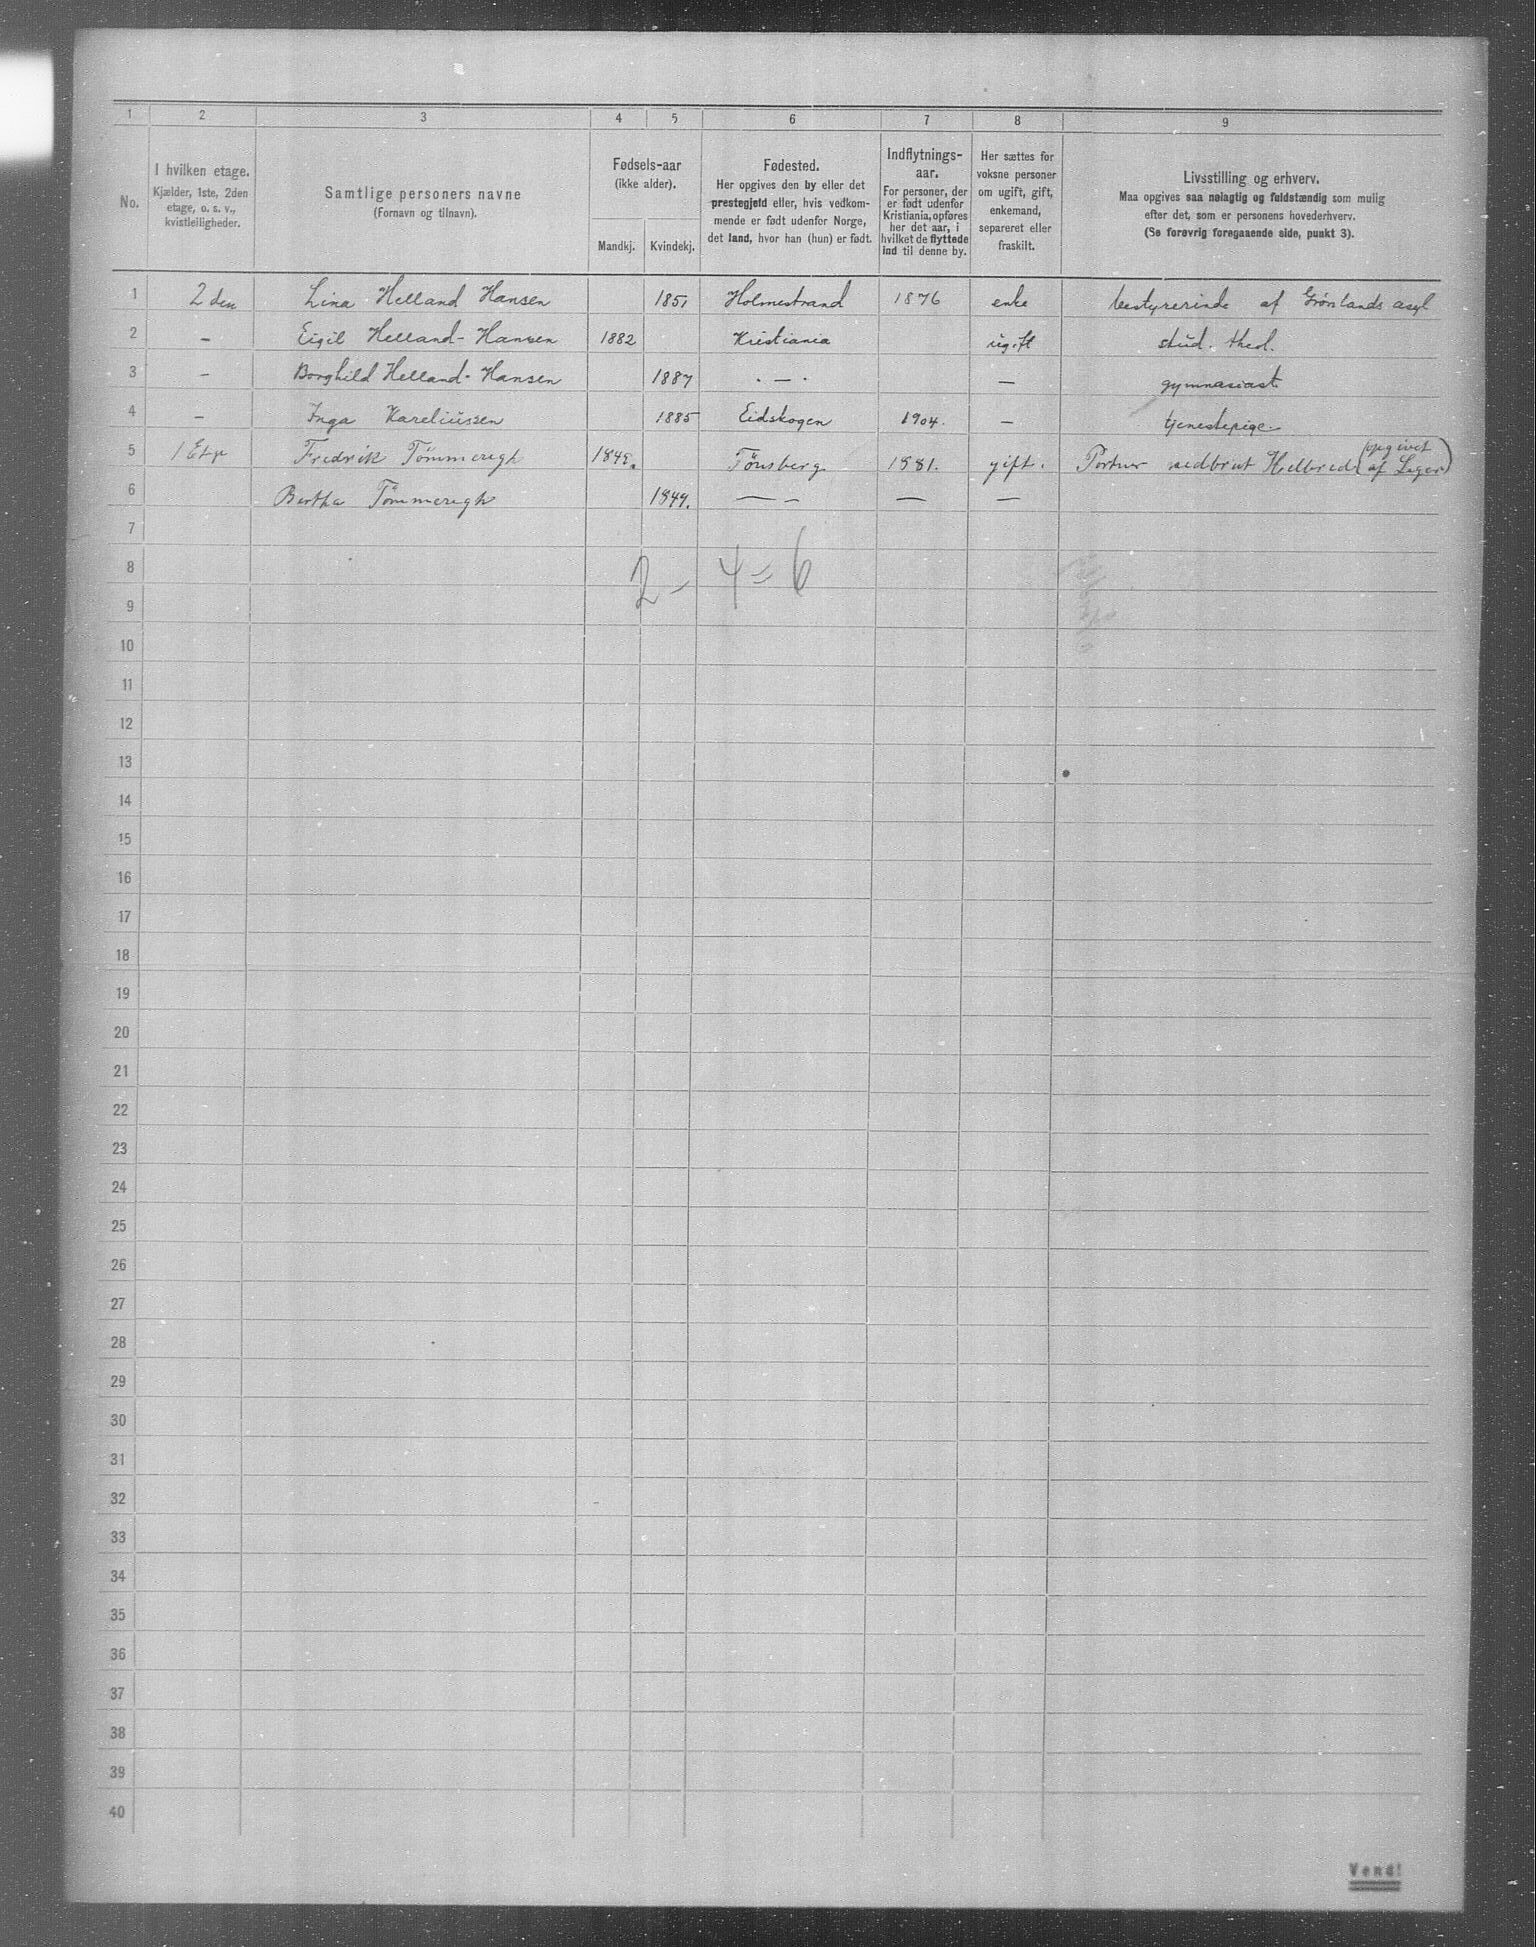 1 2 3 4 5 6 7 8 9
No.
I hvilken etage.
Kjælder, 1ste, 2den
etage, o. s. v.,
kvistleiligheder.
Samtlige personers navne
(Fornavn og tilnavn).
Fødsels-aar
(ikke alder).
Mandkj. Kvindekj.
Fødested.
Her opgives den by eller det
prestegjeld eller, hvis vedkom-
mende er født udenfor Norge,
det land, hvor han (hun) er født.
Indflytnings-
aar.
For personer, der
er født udenfor
Kristiania, opføres
her det aar, i
hvilket de flyttede
ind til denne by.
Her sættes for
voksne personer
om ugift, gift,
enkemand,
separeret eller
fraskilt.
Livsstilling og erhverv.
Maa opgives saa nøiagtig og fuldstændig som mulig
efter det, som er personens hovederhverv.
(Se forøvrig foregaaende side, punkt 3).
1 2den Lina Helland Hansen 1851 Holmestrand 1876 enke bestyrerinde af Grønlands asyl
2 – Eigil Helland-Hansen 1882 Kristiania ugift stud. theol.
3 – Borghild Helland-Hansen 1887 . – . – gymnasiast
4 – Inga Kareliussen 1885 Eidskogen 1904. – tjenestepige
5 1 Etg Fredrik Tømmeregh Tønsberg 1881. gift. Portner nedbrut Helbred (opgivet
af Læger)
6 Bertha Tømmeregh 1849. — – — —
7
8
2 – 4 = 6
9
10
11
12
13
14
15
16
17
18
19
20
21
22
23
24
25
26
27
28
29
30
31
32
33
34
35
36
37
38
39
40
Vend!